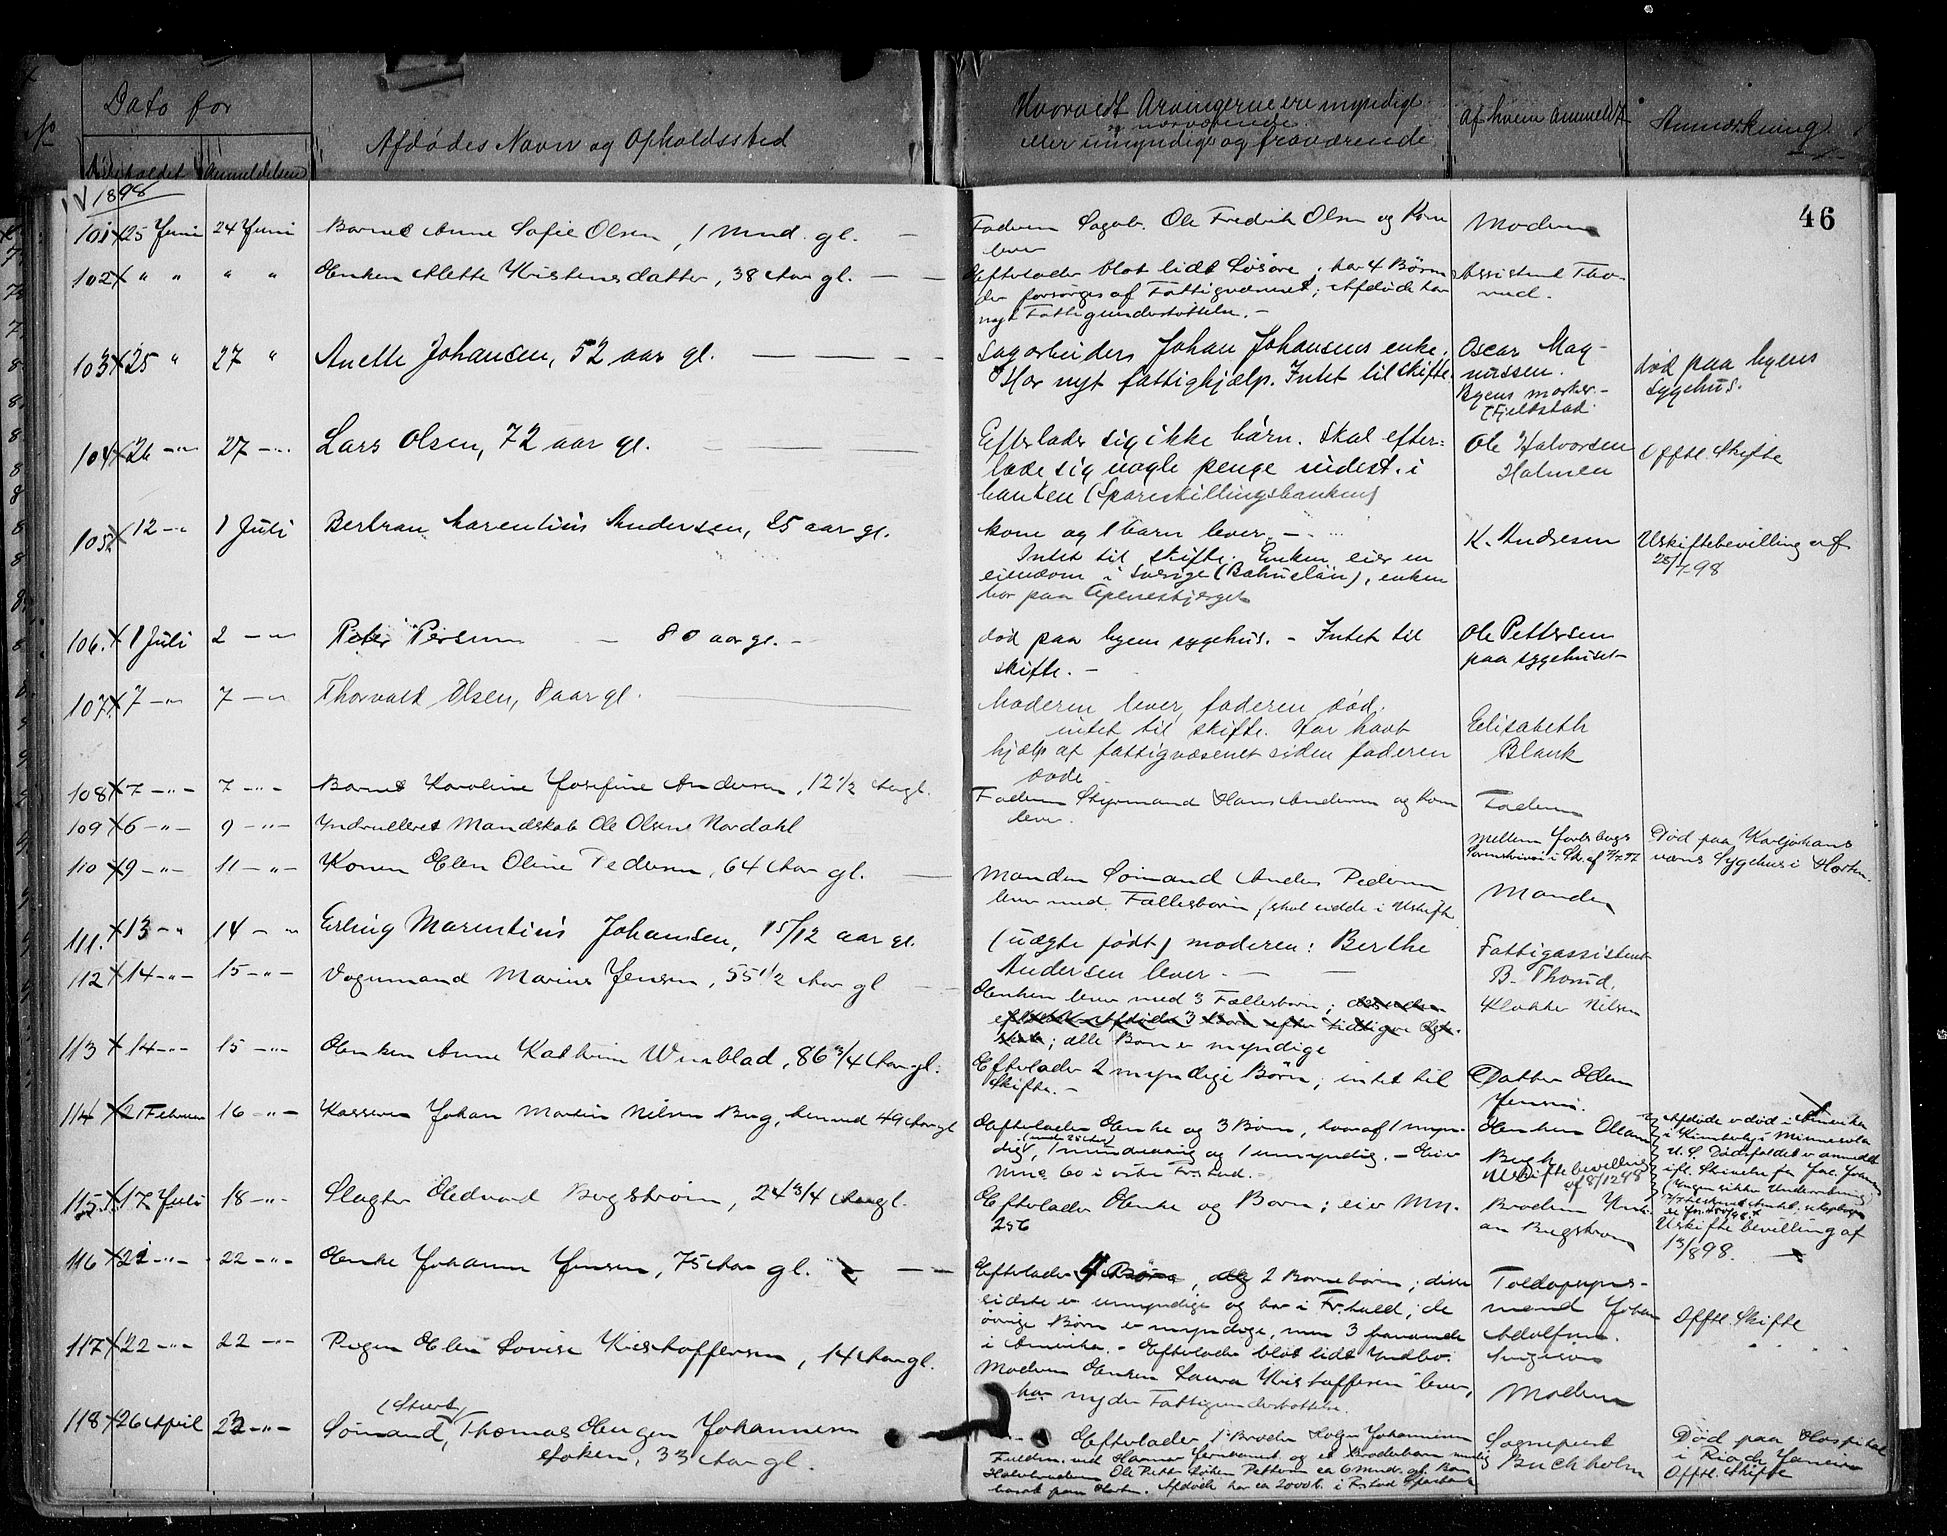 No
Dato for
Dødsfaldet
Anmeldelsen
Afdødes Navn og Opholdssted
Hvorvidt Arvingerne ere myndige
og nærværende
eller umyndige og fraværende
af hvem anmeldt
Anmærkning
46
1898
101 25 Juni 24 Juni Barnet Anne Sofie Olsen, 1 Mnd. gl. —
Faderen Sagarb. Ole Fredrik Olsen og Kone
lever
Moderen
102 " " " " Enken Alette Kristensdatter, 38 Aar gl. — —
Efterlader blot lidt Løsøre; har 4 Børn
der forsørges af Fattigvæsenet; Afdøde har
nydt Fattigunderstøttelse. —
Assistent Tho-
rud.
103 25 " 27 " Anette Johansen, 52 aar gl. — — — —
Sagarbeiders Johan Johansens enke.
Har nyt fattighjælp. Intet til skifte.
Oscar Mag-
nussen.
Byens marker
Fjeldstad.
død paa byens
sygehus.
104 26 — " 27 — " Lars Olsen, 72 aar gl.
Efterlader sig ikke børn. Skal efter-
lade sig nogle penge indest. i
banken (Spareskillingsbanken)
Ole Halvorsen
Holmen
Offtl. Skifte
105 12 — " 1 Juli Bertran Larentius Andersen, 25 aar gl.
kone og 1 barn lever. —
Intet til skifte. Enken eier en
eiendom i Sverige (Bohuslän), enken
bor paa Apenesbjerget
K. Andresen
Uskiftebevilling af
25/7-98
106. 1 Juli 2 — " Peter Persen — 80 aar gl. —
død paa byens sygehus. — Intet til
skifte. —
Ole Pettersen
paa sygehuset
107. 7 — " 7 — " Thorvald Olsen, 8 aar gl.
Moderen lever, faderen død.
intet til skifte. Har havt
hjælp af fattigvæsenet siden faderen
døde
Elisabeth
Blank
108 7 — " — 7 — " — Barnet Karoline Josefine Andersen, 12 1/2 Aar gl.
Faderen Styrmand Hans Andersen og Kone
lever.
Faderen
109 6 — " — 9 — " — Indrulleret Mandskab Ole Olsen Nordahl
Mellem Jarlsbergs
Sorenskriveri i Sk. af
Død paa Karljohans
værns Sygehus i Horten.
110 9 — " — 11 — " — Konen Elen Oline Pedersen, 64 Aar gl. —
Manden Sømand Anders Pedersen
lever med Fællesbørn, skal sidde i Uskifte
Manden
111. 13 — " 14 — " Erling Marentius Johansen, 15/12 aar gl.
(uægte født) moderen: Berthe
Andersen lever. — —
Fattigassistent
B. Thorud.
112 14 — " — 15 — " — Vognmand Marius Jensen, 55 1/2 Aar gl
Enken lever med 3 Fællesbørn;
efter Afdøde 3 Børn efter tidligere Egte-
skab; alle Børn er myndige
Klokker Nilsen
113 14 — " — 15 — " — Enken Anne Kathrine Winblad, 86 3/4 Aar gl.
Efterlader 2 myndige Børn; intet til
Skifte. —
Datter Elen
Jensen.
114 21 Februar 16 — " — Kasserer Johan Martin Nilsen Bug, 49 Aar gl
Efterlader Enke og 3 Børn, hvoraf 1 myn-
dig, (under 25 Aar) 1 mindreaarig og 1 umyndig. — Eier
Mn. 60 i vstre Fr.stad. —
Enken
Uskiftebevilling
af 8/12 98
Afdøde er død i Amerika
i Kimberly i Minnesota
U. S. Dødsfaldet er anmeldt
115. 17 Juli 18 — " — Slagter Edvard Bergstrøm, 24 3/4 Aar gl.
Efterlader Enke og Børn; eier Mn.
256
Broderen
Uskiftebevilling af
13/8 98.
116 21 — " — 22 — " — Enke Johanne Jensen, 75 Aar gl. — —
Efterlader 4 Børn, 2 Børnebørn; disse
sidste er umyndige og bor i Fr.stad; de
øvrige Børn er myndige, men 3 fraværende
i Amerika. — Efterlader blot lidt Indbo.
Toldopsyns-
mand Johan
Adolfsen
Offtl. Skifte
117 22 — " — 22 — " — Pigen Elen Lovise Kristoffersen, 14 Aar gl.
Moderen Enken Laura Kristoffersen lever,
har nyder Fattigunderstøttelse.
Moderen
118 26 April 23 — " — Sømand, (Stuert) Thomas Jørgen Johannesen
Løken, 33 Aar gl.
Efterlader 1 Broder Holger Johannesen
Sogneprest
Buchholm
Død paa Hospital
i Rio de Janeiro
Offtl. Skifte